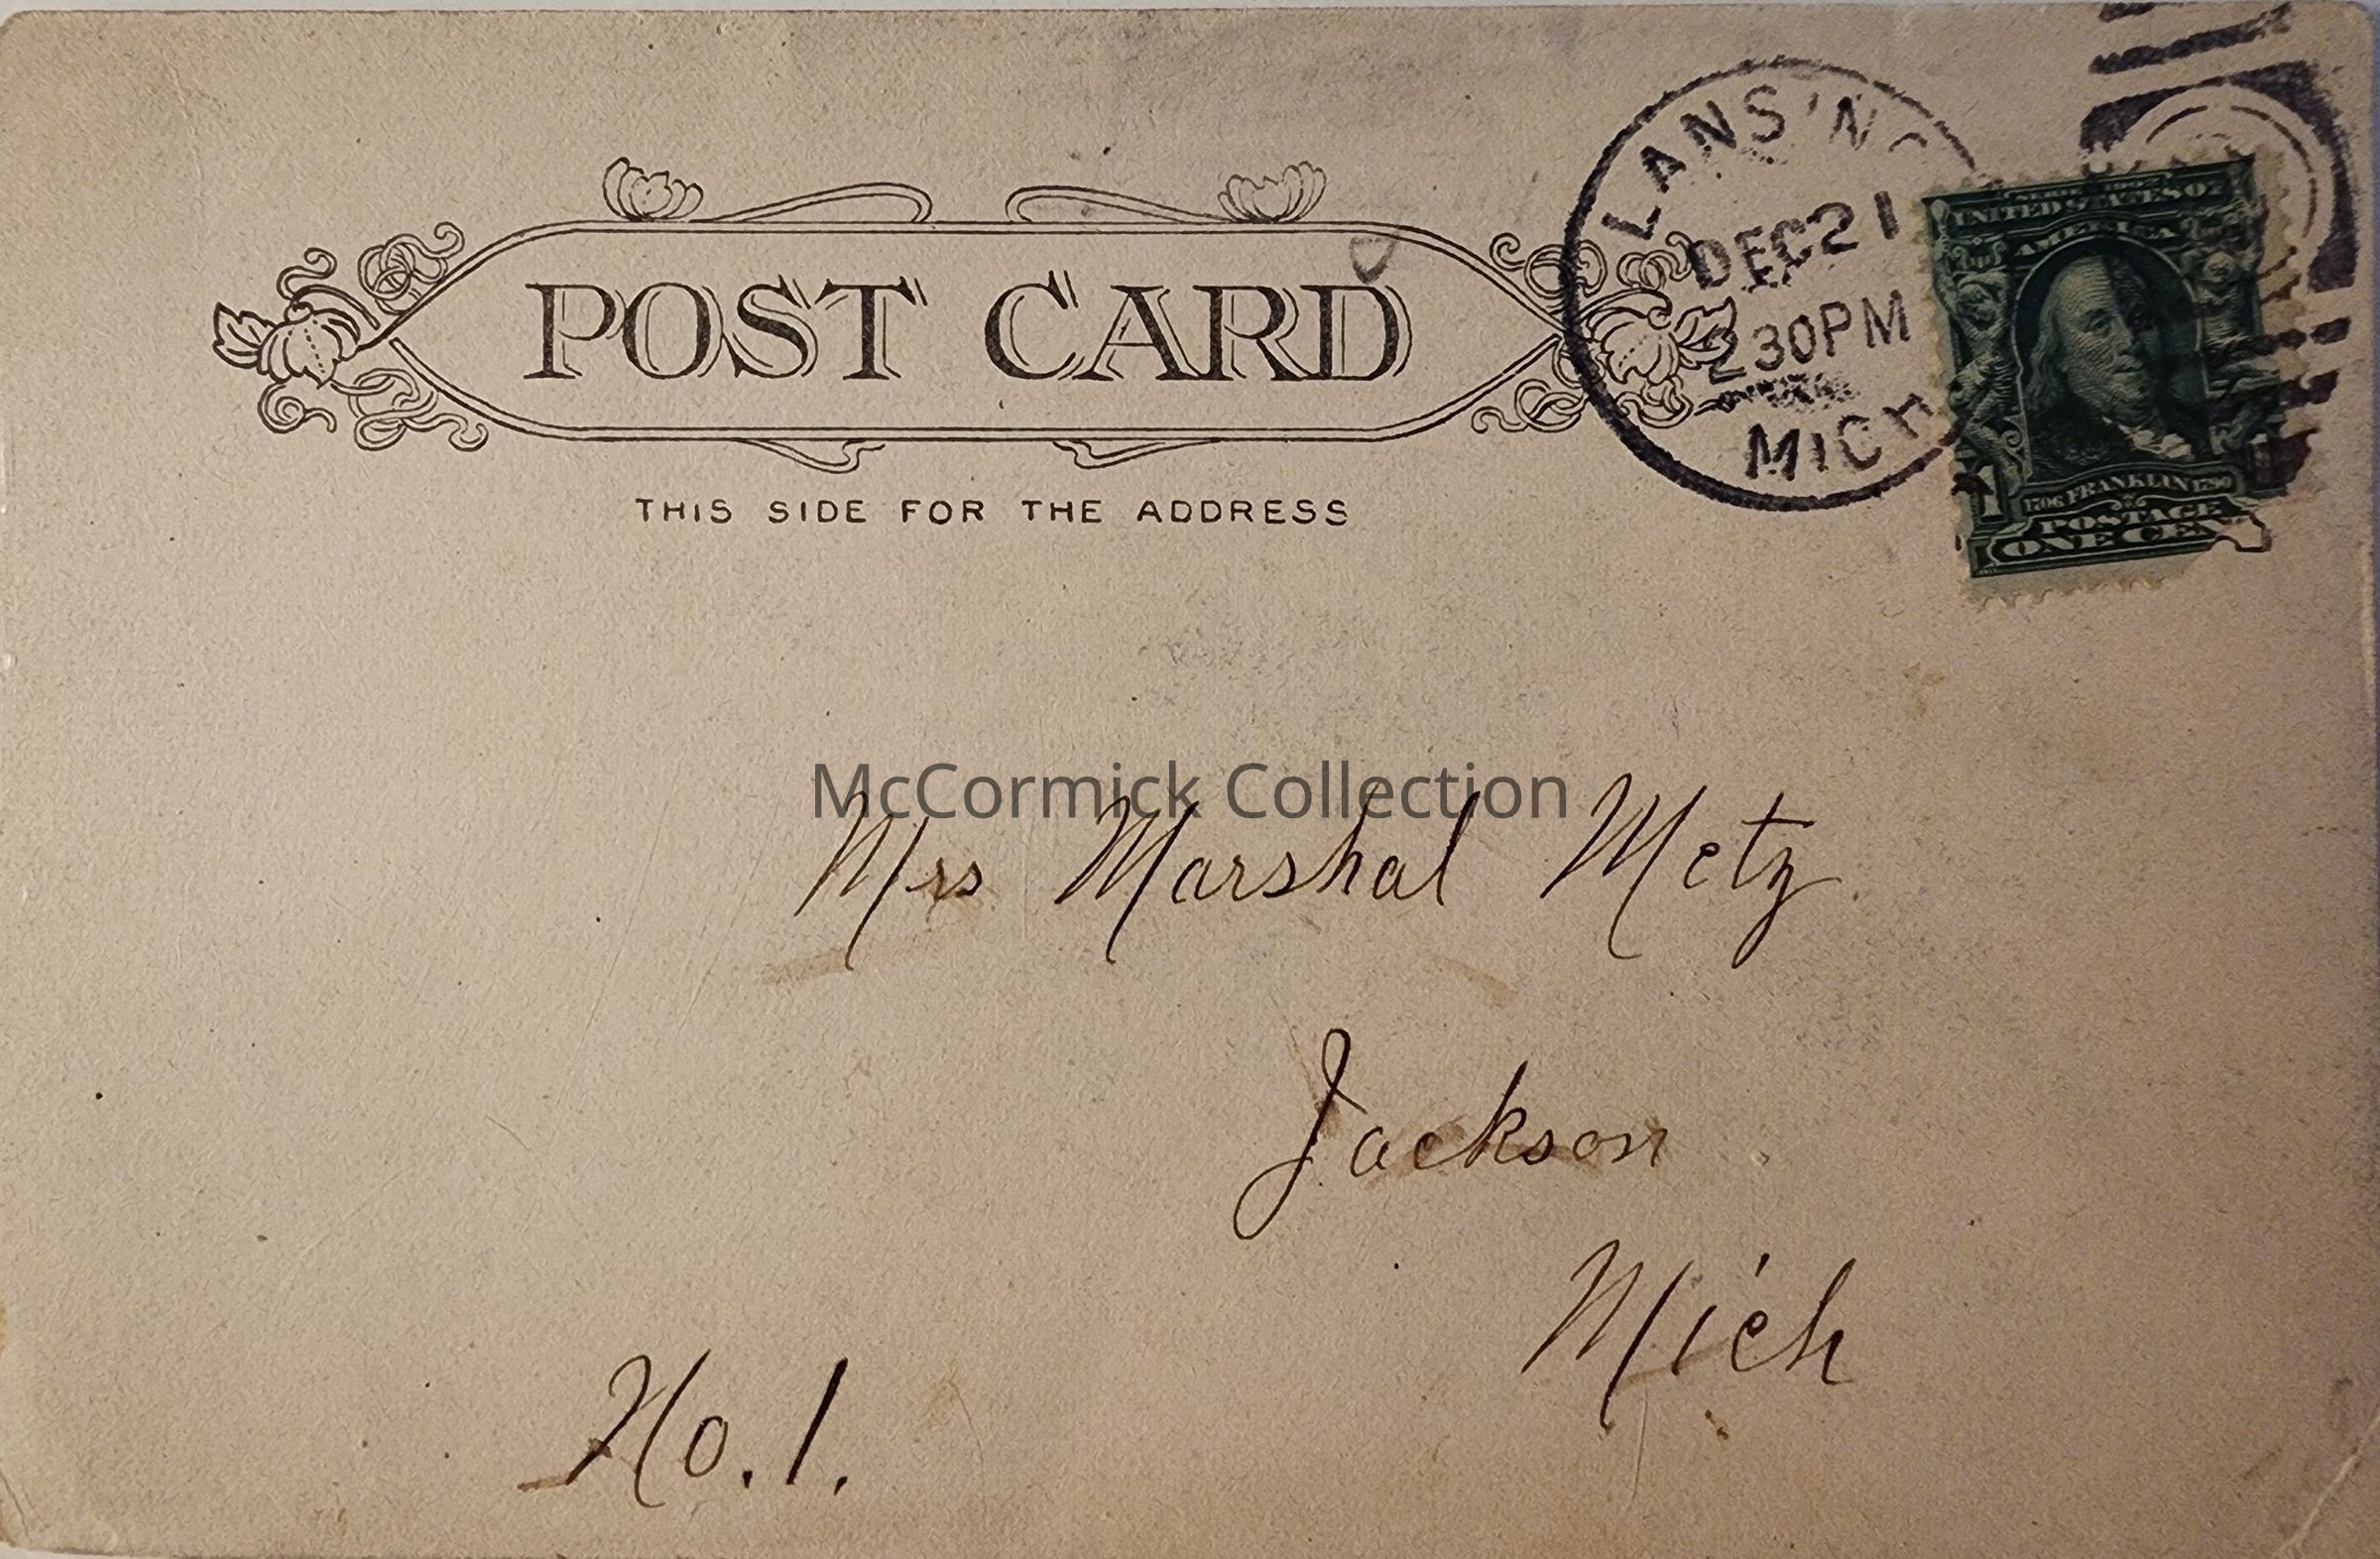 LANSING
DEC 21
2 30 PM
MICH
SERIES 1902
UNITED STATES OF
AMERICA
1706 FRANKLIN 1790
POSTAGE
ONE CEN
1
POST CARD
THIS SIDE FOR THE ADDRESS
McCormick Collection
Mrs Marshal Metz
Jackson
Mich
No. 1.